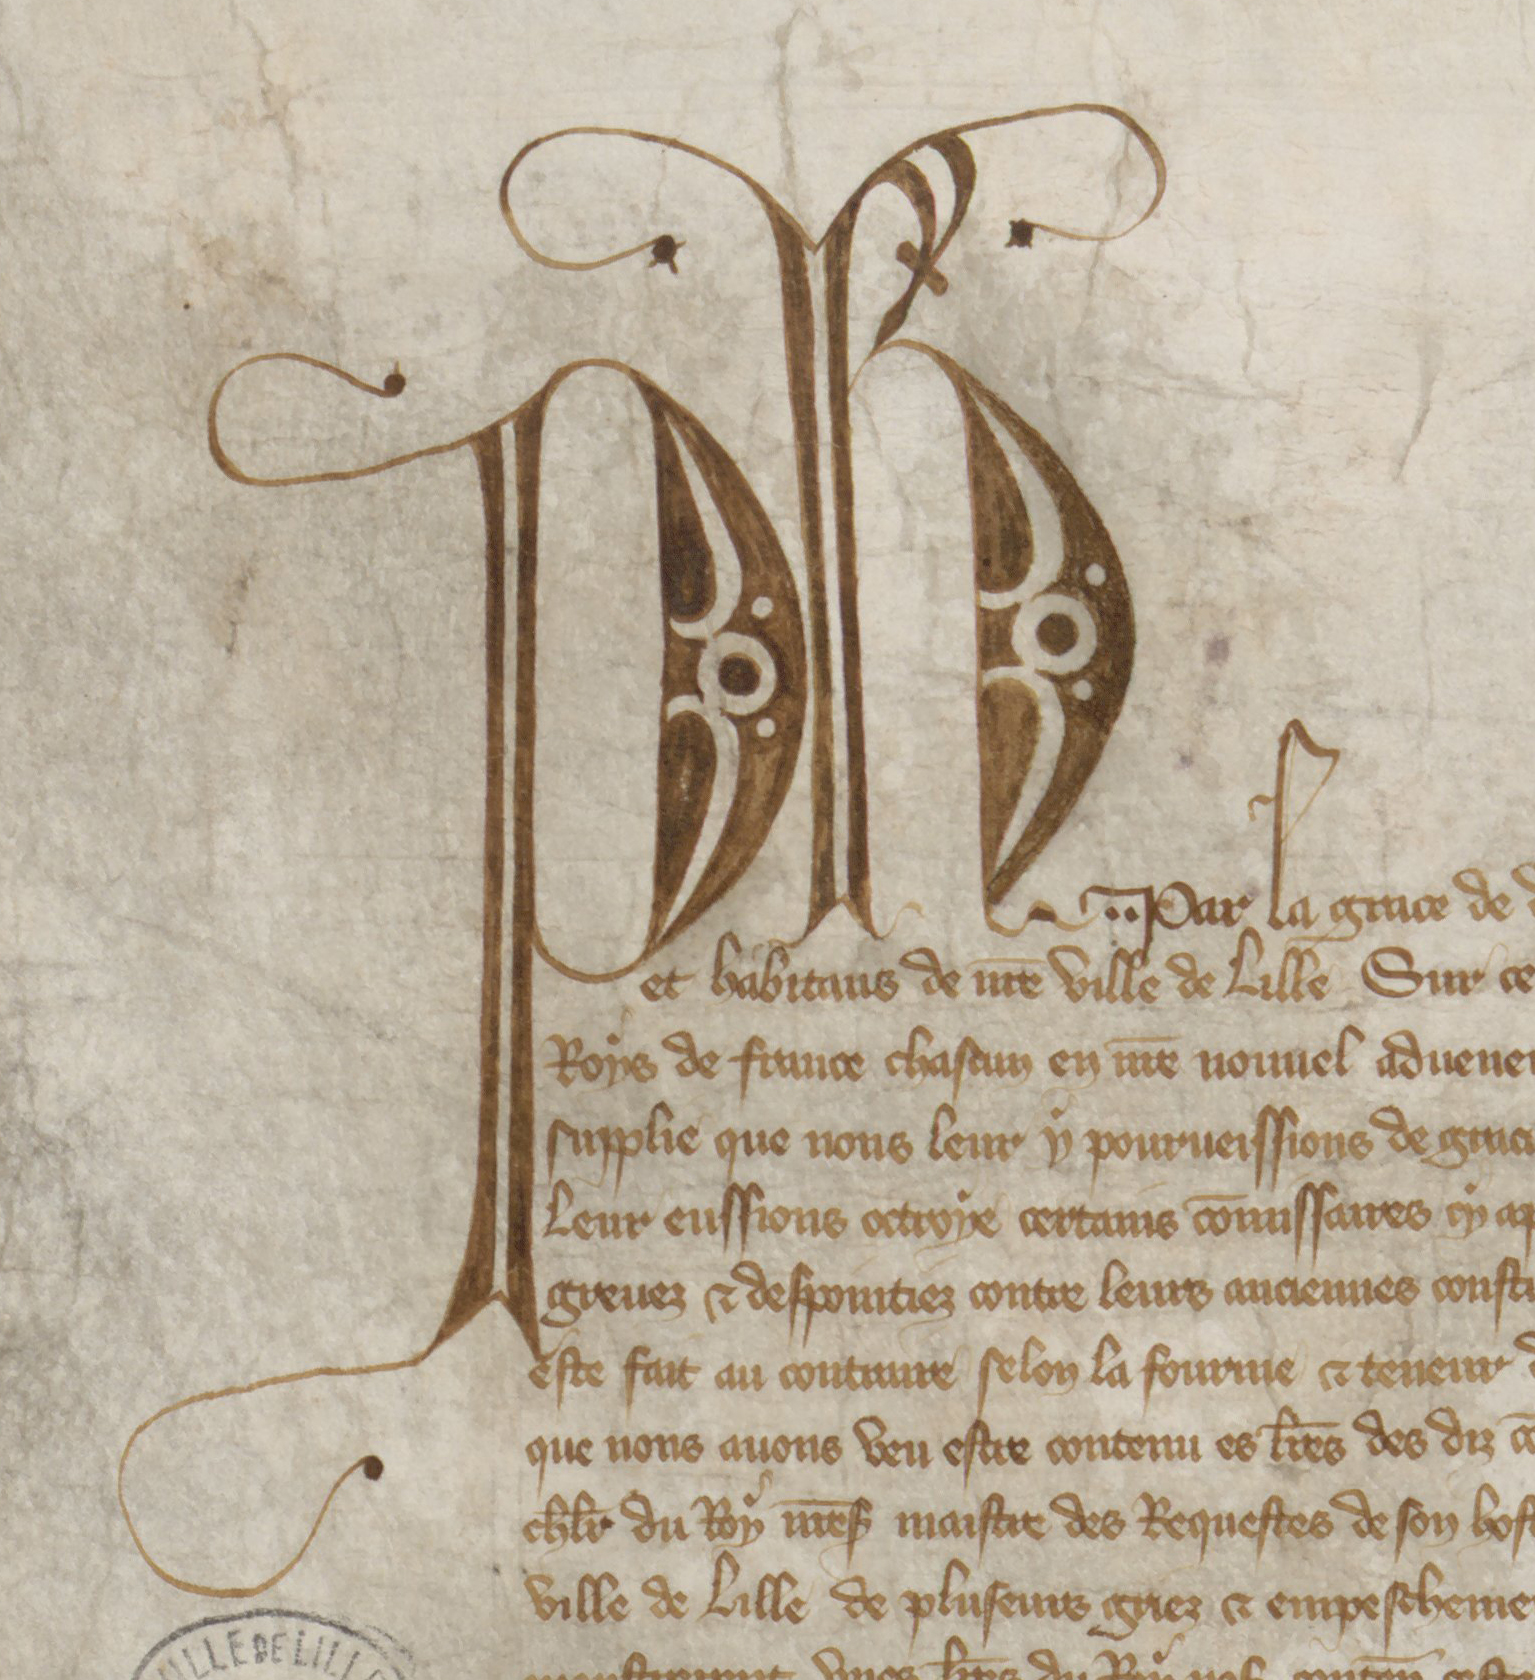 Ph .. Par la grace de d
et habitans de nr̄e ville de Lille Sur ce
Roys de france chascun en nr̄e nouuel aduene
supplie que nous leur y pourueissions de grac
Leur eussions octroye certains cōmissaires
greuez ⁊ despointiez contre leurs anciennes
este fait au contraire selon la fourme ⁊ teneur d
que nous auons veu estre contenu es lr̄es des diz
chl̄r du Roy nr̄e maistre des Requestes de son host
ville de Lille de pluseurs griez ⁊ empescheme
VILLE DE LILLE
vnes lr̄es du Roy